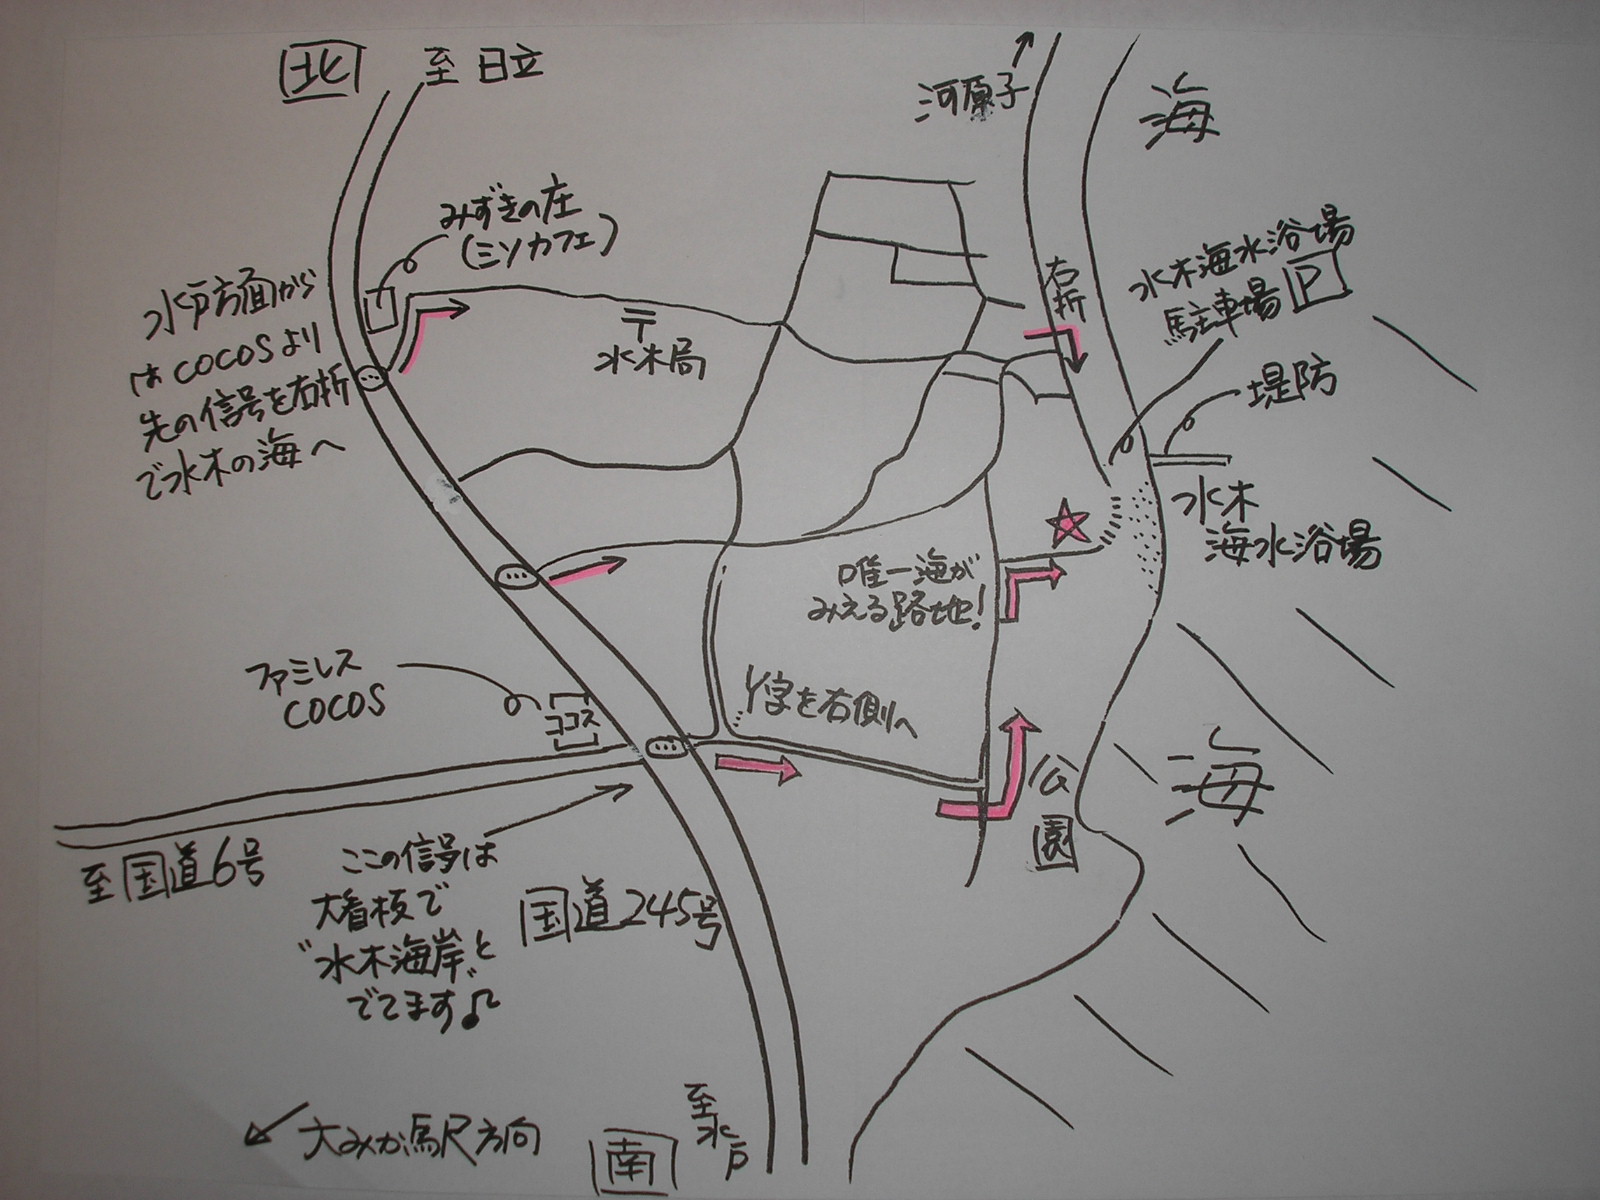 北
至日立
河原子
海
みずきの庄
(ミソカフェ)
水戸方面から
はCOCOSより
先の信号を右折
で水木の海へ
〒
水木局
右折
水木海水浴場
駐車場 P
堤防
水木
海水浴場
唯一海が
みえる路地!
ファミレス
COCOS
ココス
Y字を右側へ
公
園
海
至国道6号
ここの信号は
大看板で
"水木海岸"と
でてます♫
国道245号
大みか駅方向
南
至
水
戸